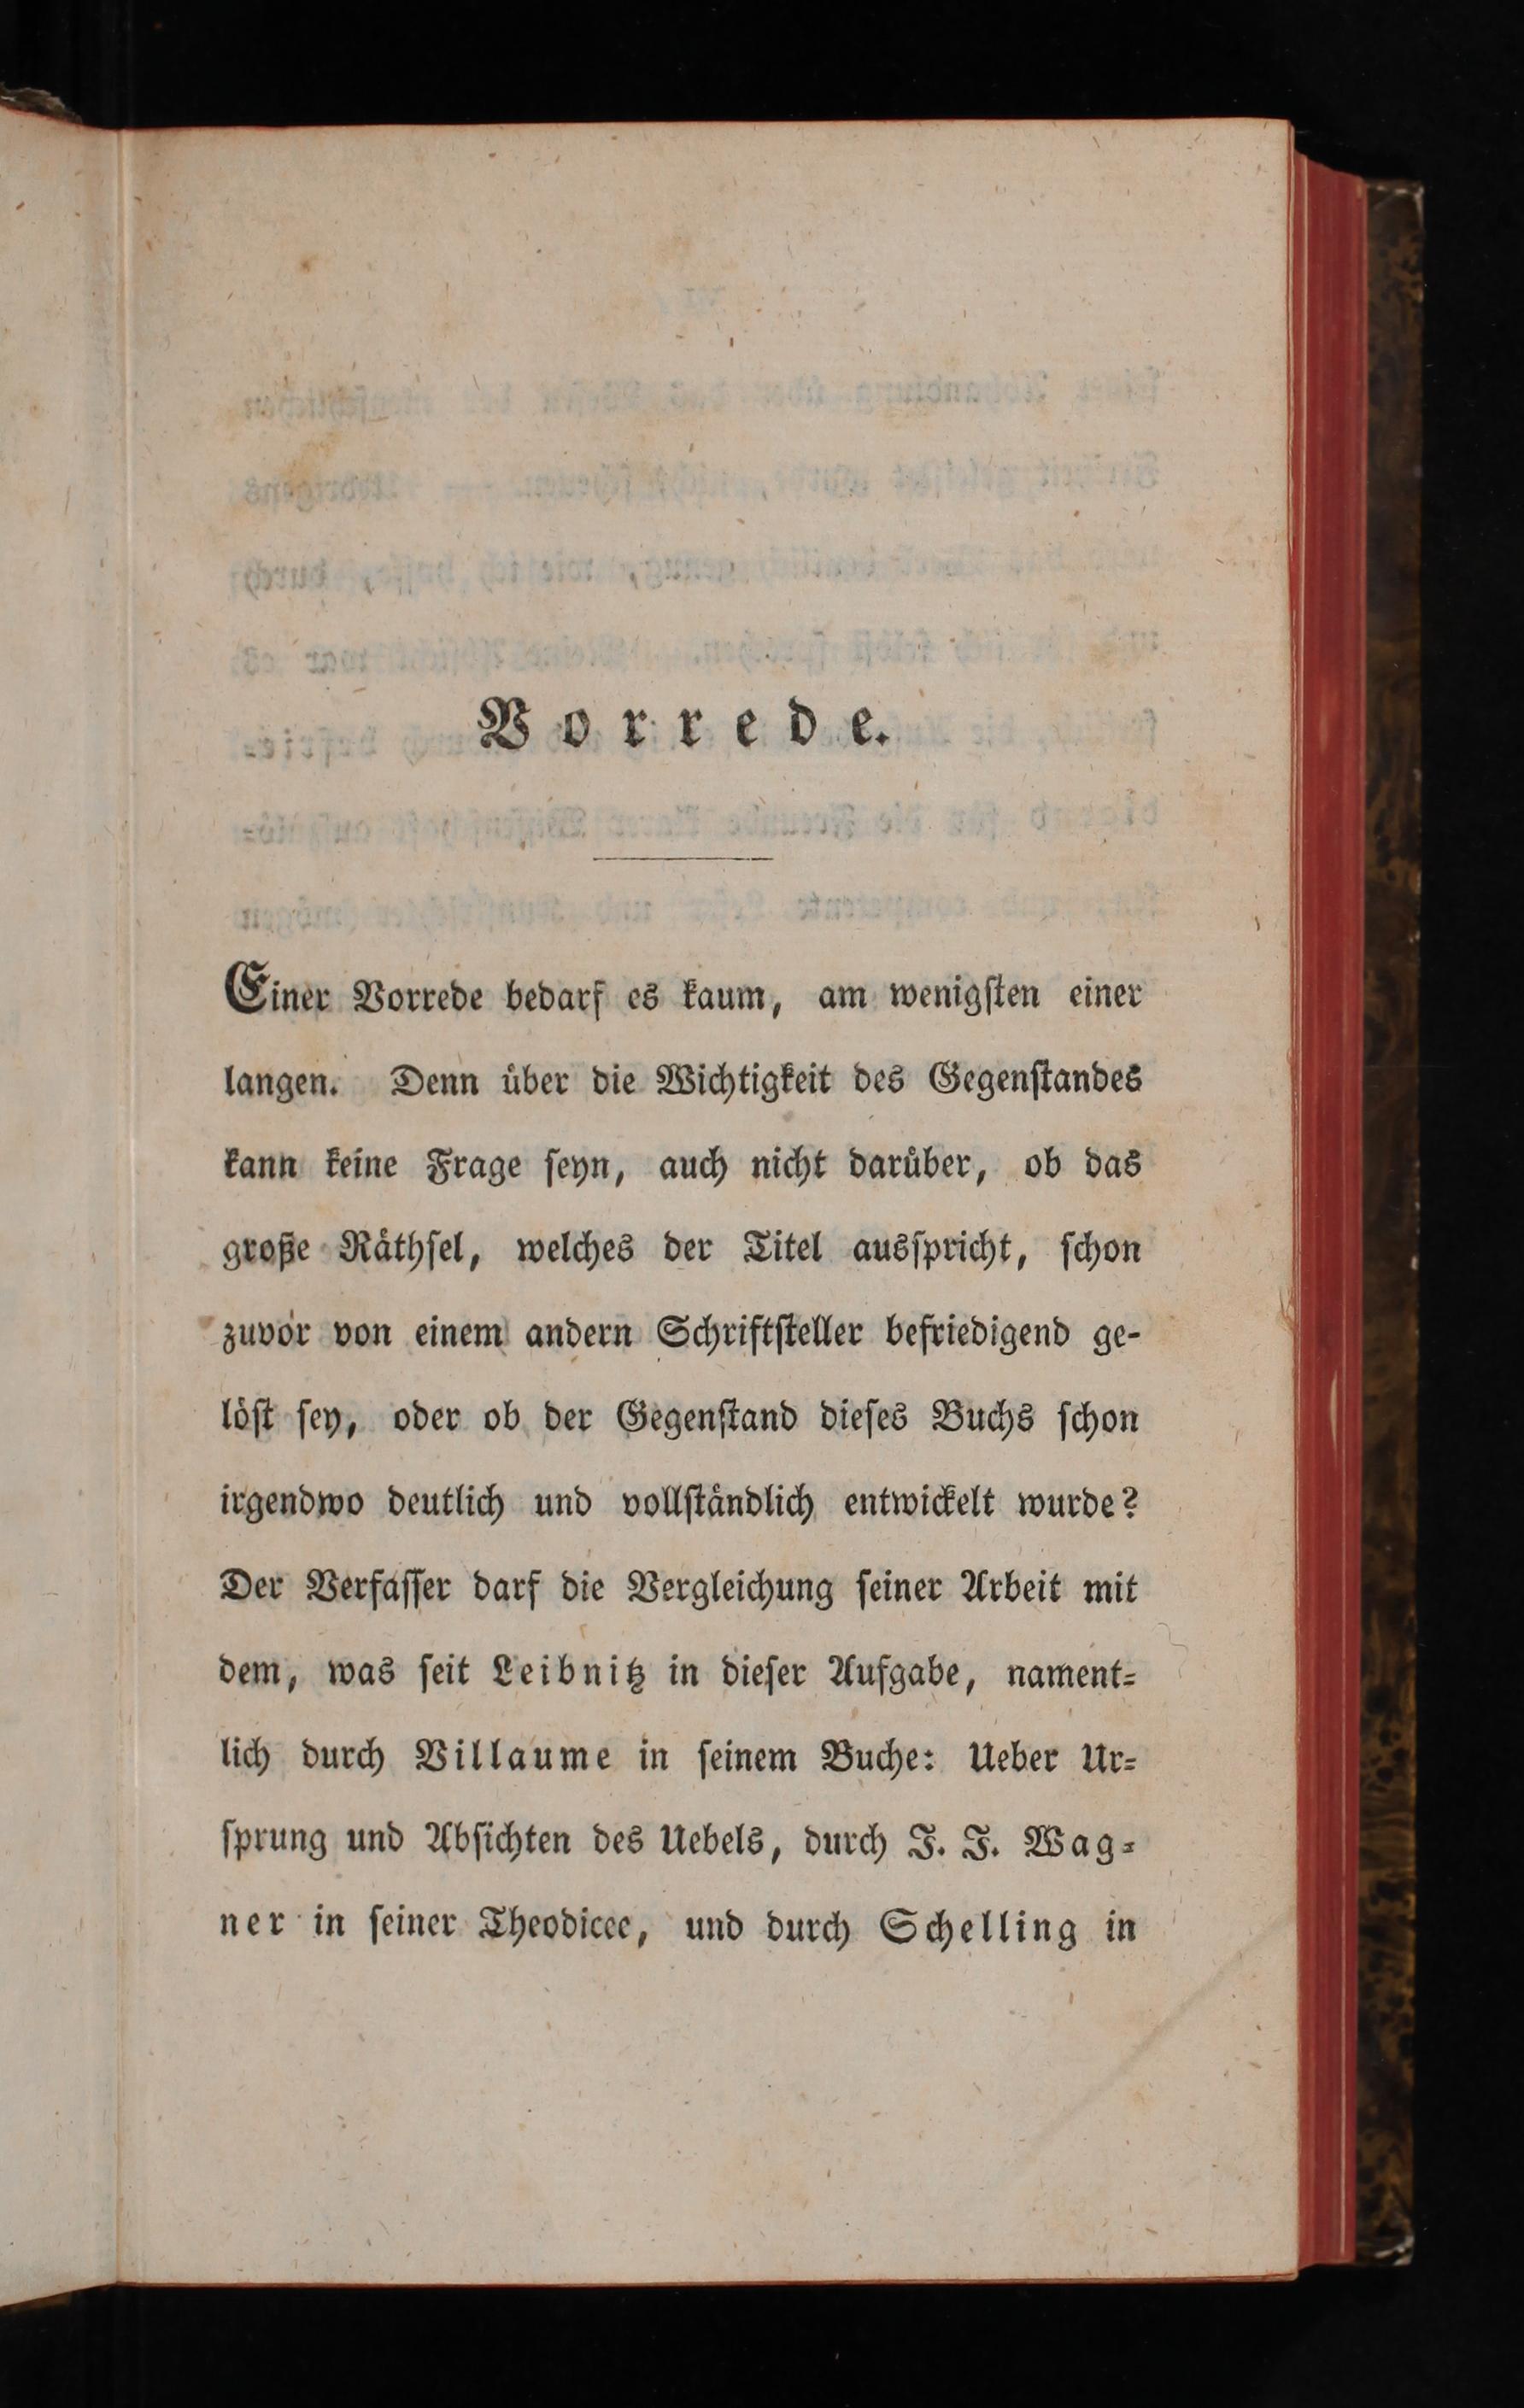 Vorrede.
Einer Vorrede bedarf es kaum, am wenigſten einer
langen. Denn uͤber die Wichtigkeit des Gegenſtandes
kann keine Frage ſeyn, auch nicht daruͤber, ob das
große Raͤthſel, welches der Titel ausſpricht, ſchon
zuvor von einem andern Schriftſteller befriedigend ge-
loͤſt ſey, oder ob der Gegenſtand dieſes Buchs ſchon
irgendwo deutlich und vollſtaͤndlich entwickelt wurde?
Der Verfaſſer darf die Vergleichung ſeiner Arbeit mit
dem, was ſeit Leibnitz in dieſer Aufgabe, nament-
lich durch Villaume in ſeinem Buche: Ueber Ur-
ſprung und Abſichten des Uebels, durch J. J. Wag-
ner in ſeiner Theodicee, und durch Schelling in